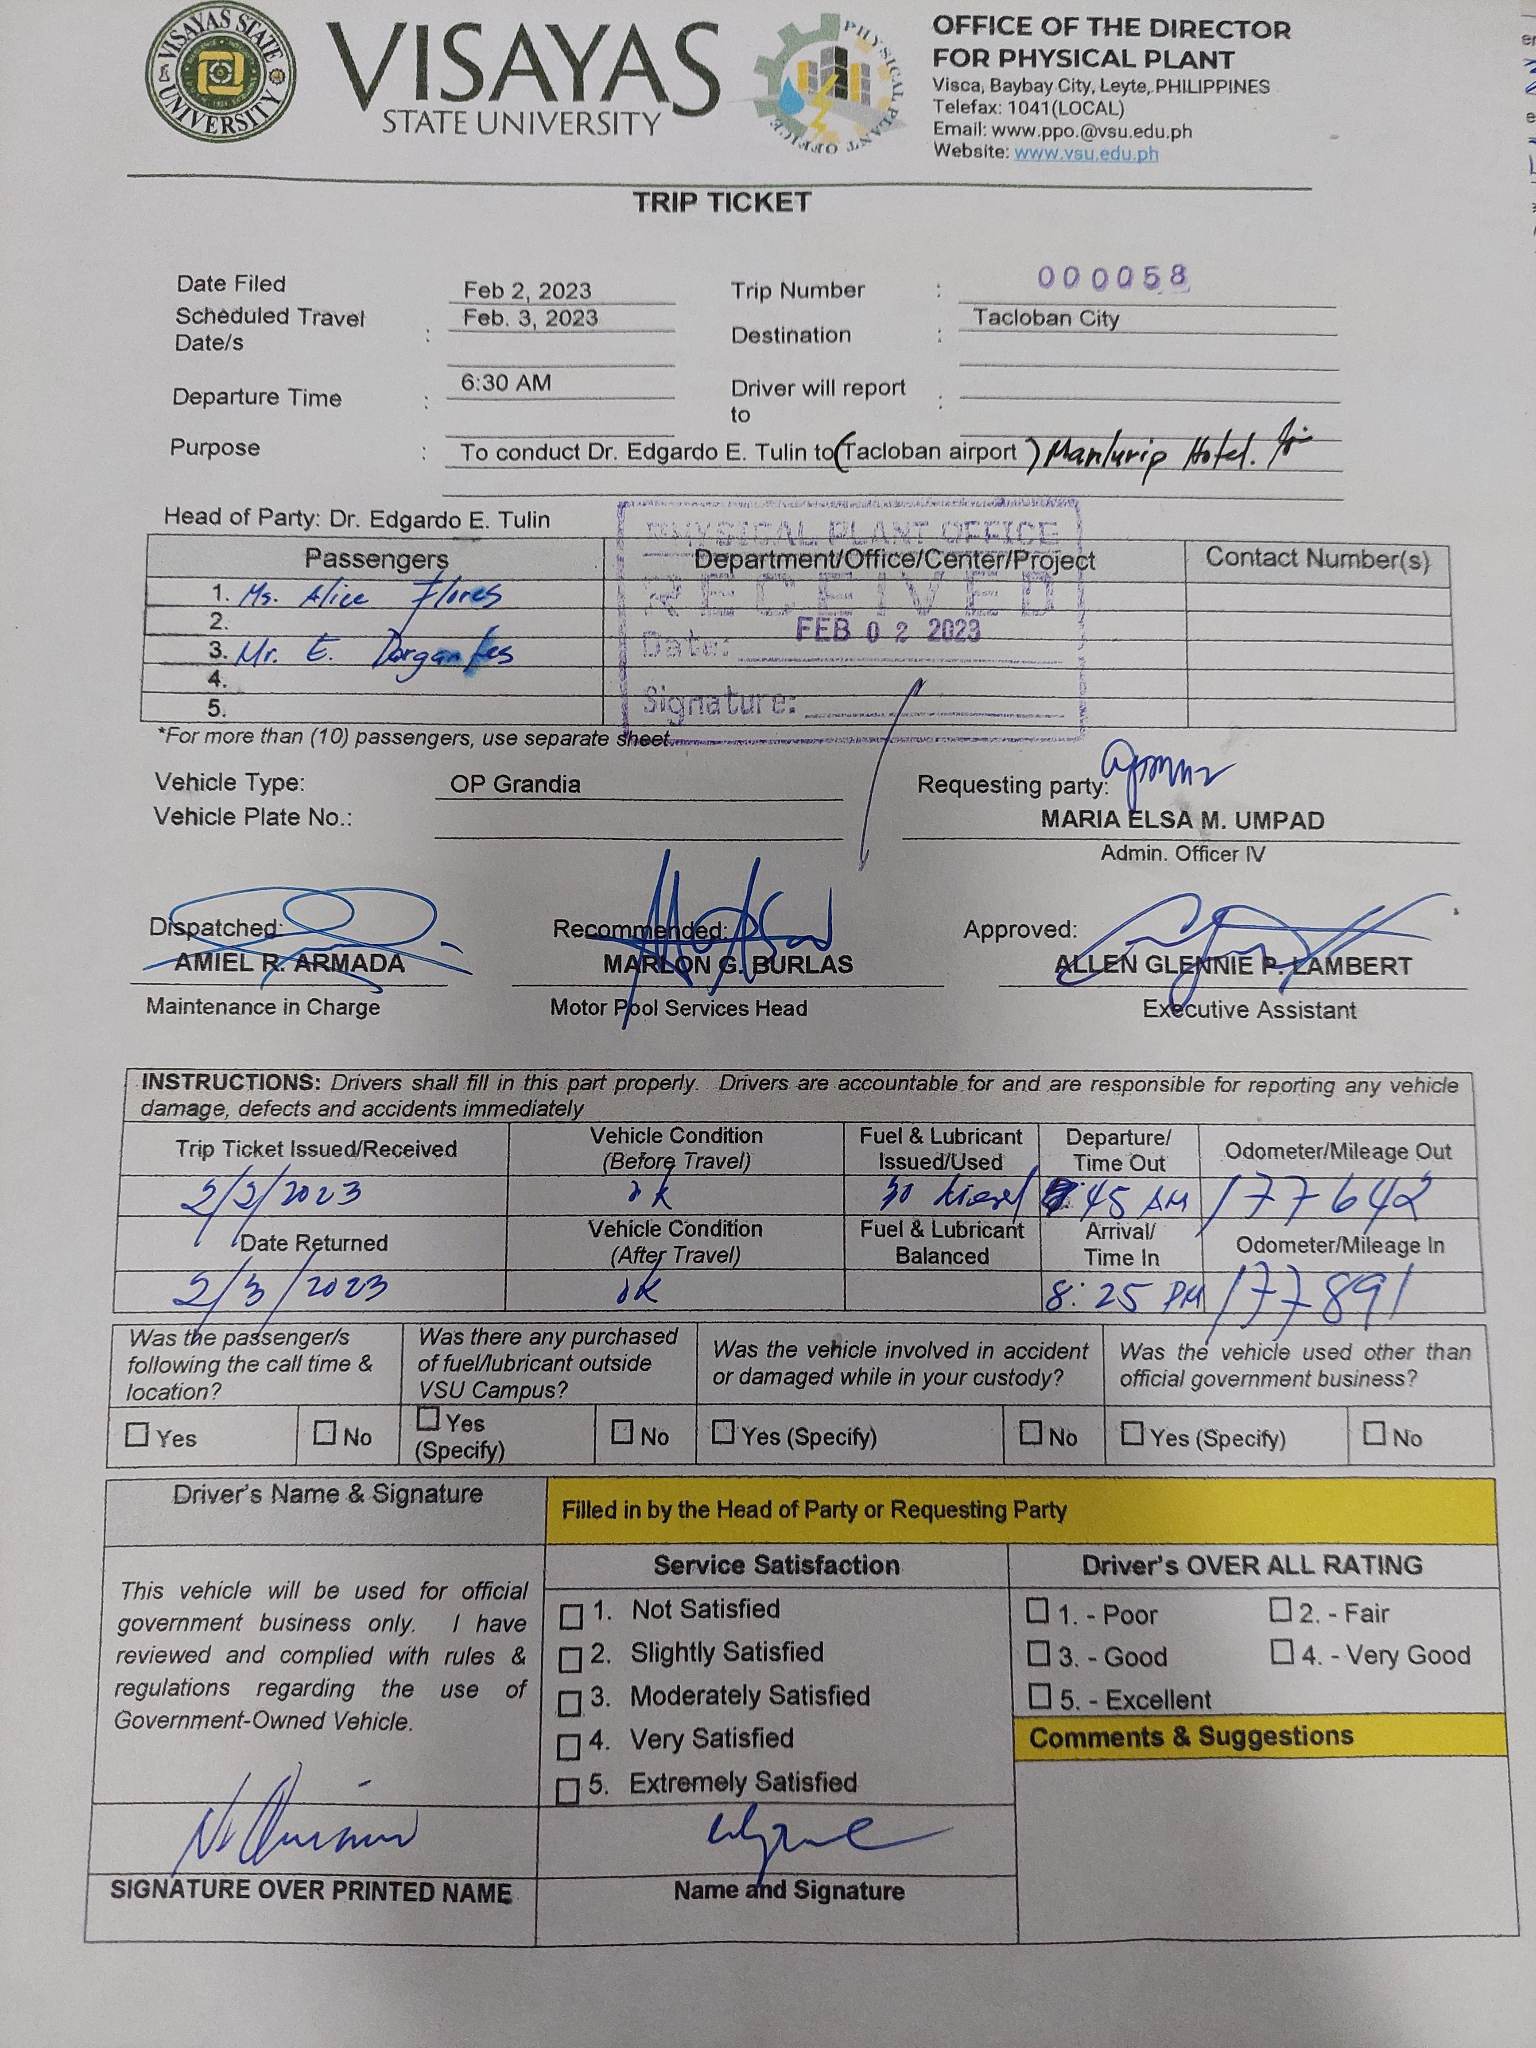 VISAYAS STATE UNIVERSITY
VISAYAS
STATE UNIVERSITY
PHYSICAL PLANT OFFICE
OFFICE OF THE DIRECTOR
FOR PHYSICAL PLANT
Visca, Baybay City, Leyte, PHILIPPINES
Telefax: 1041(LOCAL)
Email: www.ppo.@vsu.edu.ph
Website: www.vsu.edu.ph
TRIP TICKET
Date Filed Feb 2, 2023 Trip Number : 000058
Scheduled Travel Date/s : Feb. 3, 2023 Destination : Tacloban City
Departure Time : 6:30 AM Driver will report to :
Purpose : To conduct Dr. Edgardo E. Tulin to (Tacloban airport) Manlurip Hotel.
Head of Party: Dr. Edgardo E. Tulin
Passengers Department/Office/Center/Project Contact Number(s)
1. Ms. Alice Flores
2.
3. Mr. E.
4.
5.
PHYSICAL PLANT OFFICE
RECEIVED
Date: FEB 02 2023
Signature:
*For more than (10) passengers, use separate sheet.
Vehicle Type: OP Grandia Requesting party:
Vehicle Plate No.: MARIA ELSA M. UMPAD
Admin. Officer IV
Dispatched: Recommended: Approved:
AMIEL R. ARMADA MARLON G. BURLAS ALLEN GLENNIE P. LAMBERT
Maintenance in Charge Motor Pool Services Head Executive Assistant
INSTRUCTIONS: Drivers shall fill in this part properly. Drivers are accountable for and are responsible for reporting any vehicle
damage, defects and accidents immediately
Trip Ticket Issued/Received Vehicle Condition (Before Travel) Fuel & Lubricant Issued/Used Departure/ Time Out Odometer/Mileage Out
2/2/2023 ok 30 diesel :45 AM 177642
Date Returned Vehicle Condition (After Travel) Fuel & Lubricant Balanced Arrival/ Time In Odometer/Mileage In
2/3/2023 ok 8:25 PM 177891
Was the passenger/s following the call time & location? Was there any purchased of fuel/lubricant outside VSU Campus? Was the vehicle involved in accident or damaged while in your custody? Was the vehicle used other than official government business?
Yes No Yes (Specify) No Yes (Specify) No Yes (Specify) No
Driver's Name & Signature
Filled in by the Head of Party or Requesting Party
Service Satisfaction Driver's OVER ALL RATING
This vehicle will be used for official
government business only. I have
reviewed and complied with rules &
regulations regarding the use of
Government-Owned Vehicle.
1. Not Satisfied
2. Slightly Satisfied
3. Moderately Satisfied
4. Very Satisfied
5. Extremely Satisfied
1. - Poor 2. - Fair
3. - Good 4. - Very Good
5. - Excellent
Comments & Suggestions
SIGNATURE OVER PRINTED NAME Name and Signature